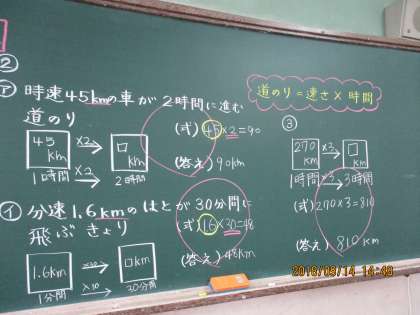 ②
㋐ 時速45kmの車が2時間に進む
道のり
45 km ×2 □ km
1時間 ×2 2時間
(式) 45×2=90
(答え) 90km
㋑ 分速1.6kmのはとが30分間に
飛ぶきょり
1.6km ×30 □km
1分間 ×30 30分間
(式) 1.6×30=48
(答え) 48km
道のり=速さ×時間
③
270 km ×3 □ km
1時間 ×3 3時間
(式) 270×3=810
(答え) 810 km
2018/09/14 14:49